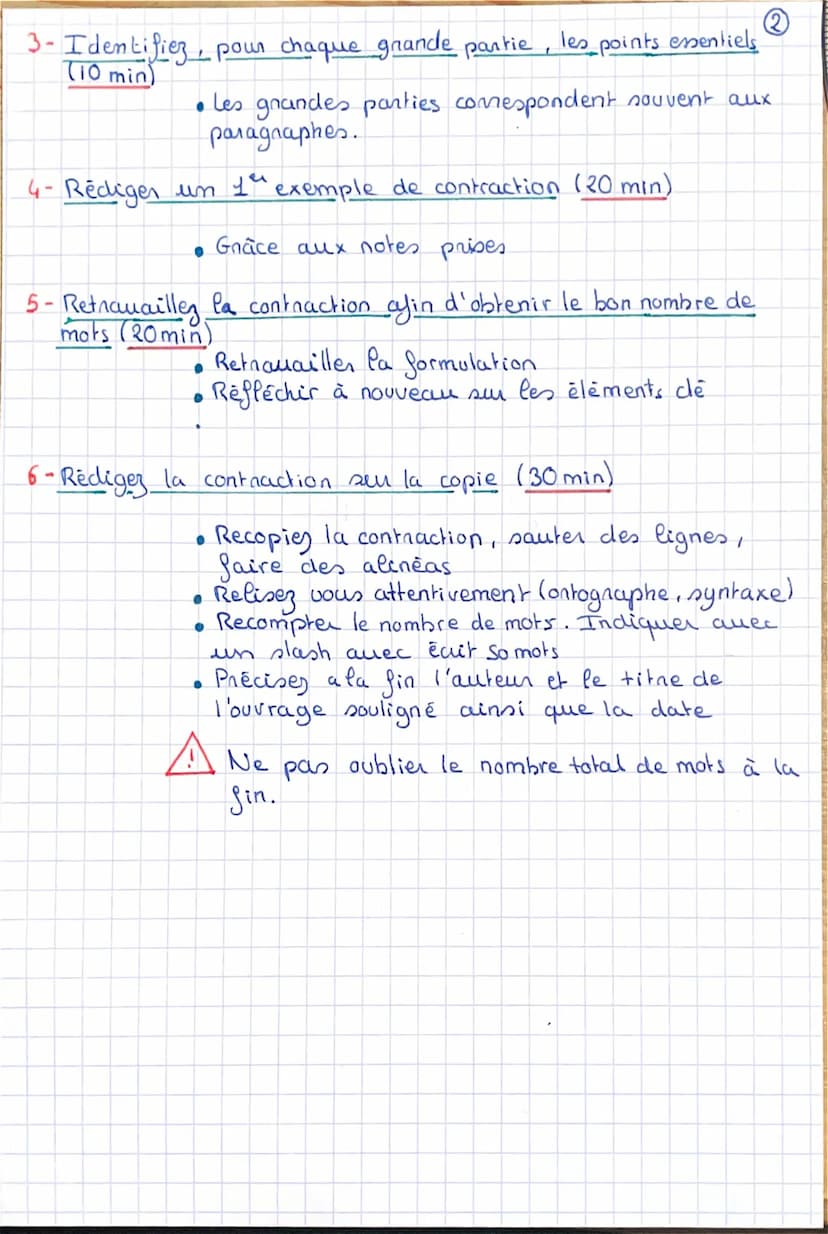 2
3- Identifiez, pour chaque grande partie, les points essentiels
(10 min)
• Les grandes parties correspondent souvent aux
paragraphes.
4- Rédiger un 1er exemple de contraction (20 min)
• Grâce aux notes prises
5- Retravaillez la contraction afin d'obtenir le bon nombre de
mots (20min)
• Retravailler la formulation
• Réfléchir à nouveau sur les éléments clé
•
6- Rédigez la contraction sur la copie (30 min)
• Recopiez la contraction, sauter des lignes,
faire des alinéas
• Relisez vous attentivement (ortographe, syntaxe)
• Recompter le nombre de mots. Indiquer avec
un slash avec écrit 50 mots
• Précisez a la fin l'auteur et le titre de
l'ouvrage souligné ainsi que la date
! Ne pas oublier le nombre total de mots à la
fin.